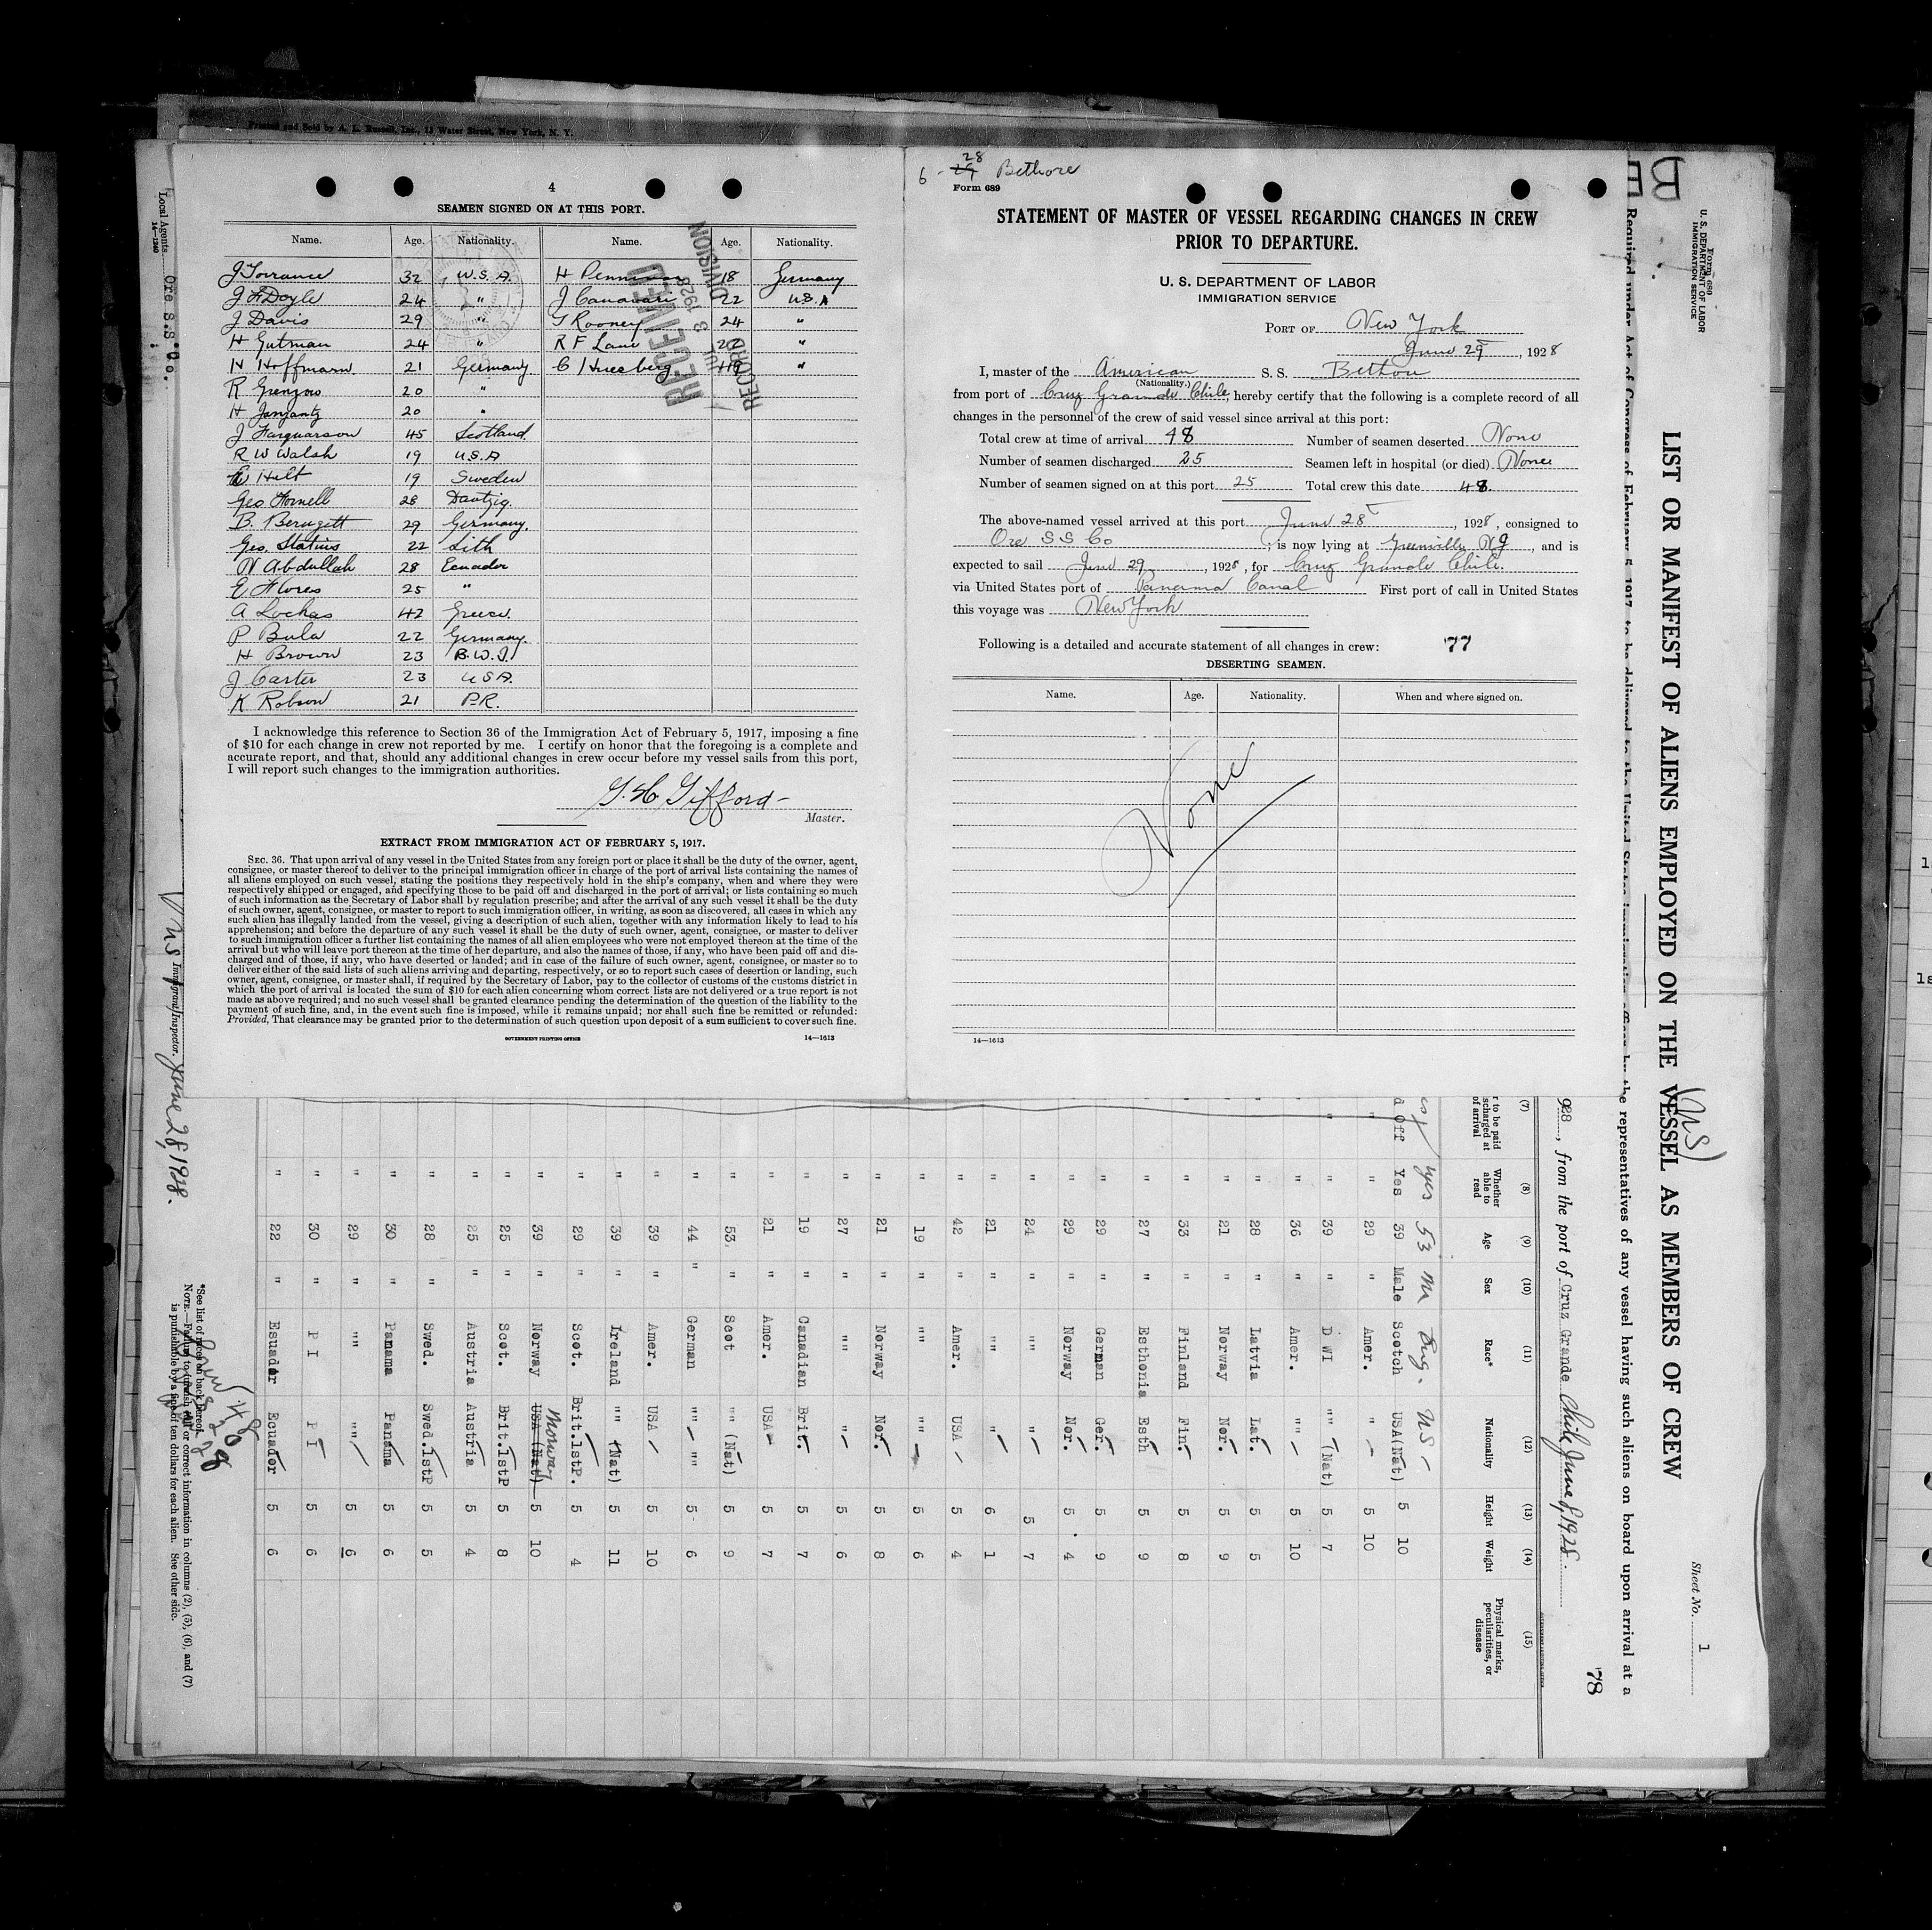 Printed and Sold by A. L. Russell, Inc., 13 Water Street, New York, N. Y.
4
SEAMEN SIGNED ON AT THIS PORT.
Name. Age. Nationality. Name. Age. Nationality.
J Torrance 32 U.S.A. H 18 Germany
J F Doyle 24 " J Canavari 22 U.S.A
J Davis 29 " G Rooney 24 "
H Gutman 24 " R F Lane "
H Hoffmann 21 Germany C "
R Grenzow 20 "
H 20 "
J Farquarson 45 Scotland.
R W Walsh 19 U.S.A
E Hilt 19 Sweden
Geo Fornell 28 Dantzig.
B. 29 Germany.
Geo. Statius 22 Lith
N Abdullah 28 Ecuador
E Flores 25 "
A Lochas 42 Greece.
P Bula 22 Germany.
H Brown 23 B.W.I.
J Carter 23 USA.
K Robson 21 P.R.
RECEIVED
JUL 3 1928
RECORD DIVISION
I acknowledge this reference to Section 36 of the Immigration Act of February 5, 1917, imposing a fine
of $10 for each change in crew not reported by me. I certify on honor that the foregoing is a complete and
accurate report, and that, should any additional changes in crew occur before my vessel sails from this port,
I will report such changes to the immigration authorities.
G. H Gifford-
Master.
EXTRACT FROM IMMIGRATION ACT OF FEBRUARY 5, 1917.
SEC. 36. That upon arrival of any vessel in the United States from any foreign port or place it shall be the duty of the owner, agent,
consignee, or master thereof to deliver to the principal immigration officer in charge of the port of arrival lists containing the names of
all aliens employed on such vessel, stating the positions they respectively hold in the ship's company, when and where they were
respectively shipped or engaged, and specifying those to be paid off and discharged in the port of arrival; or lists containing so much
of such information as the Secretary of Labor shall by regulation prescribe; and after the arrival of any such vessel it shall be the duty
of such owner, agent, consignee, or master to report to such immigration officer, in writing, as soon as discovered, all cases in which any
such alien has illegally landed from the vessel, giving a description of such alien, together with any information likely to lead to his
apprehension; and before the departure of any such vessel it shall be the duty of such owner, agent, consignee, or master to deliver
to such immigration officer a further list containing the names of all alien employees who were not employed thereon at the time of the
arrival but who will leave port thereon at the time of her departure, and also the names of those, if any, who have been paid off and dis-
charged and of those, if any, who have deserted or landed; and in case of the failure of such owner, agent, consignee, or master so to
deliver either of the said lists of such aliens arriving and departing, respectively, or so to report such cases of desertion or landing, such
owner, agent, consignee, or master shall, if required by the Secretary of Labor, pay to the collector of customs of the customs district in
which the port of arrival is located the sum of $10 for each alien concerning whom correct lists are not delivered or a true report is not
made as above required; and no such vessel shall be granted clearance pending the determination of the question of the liability to the
payment of such fine, and, in the event such fine is imposed, while it remains unpaid; nor shall such fine be remitted or refunded:
Provided, That clearance may be granted prior to the determination of such question upon deposit of a sum sufficient to cover such fine.
GOVERNMENT PRINTING OFFICE 14—1613
6 - 29 28 Bethore
Form 689
STATEMENT OF MASTER OF VESSEL REGARDING CHANGES IN CREW
PRIOR TO DEPARTURE.
U. S. DEPARTMENT OF LABOR
IMMIGRATION SERVICE
PORT OF New York
June 29, 1928
I, master of the American S. S. Bethore
(Nationality.)
from port of Cruz Grande Chile hereby certify that the following is a complete record of all
changes in the personnel of the crew of said vessel since arrival at this port:
Total crew at time of arrival 48 Number of seamen deserted None
Number of seamen discharged 25 Seamen left in hospital (or died) None
Number of seamen signed on at this port 25 Total crew this date 48.
The above-named vessel arrived at this port June 28, 1928, consigned to
Ore S S Co; is now lying at Greenville NJ, and is
expected to sail June 29, 1928, for Cruz Grande Chile.
via United States port of Panama Canal First port of call in United States
this voyage was New York
Following is a detailed and accurate statement of all changes in crew: 77
DESERTING SEAMEN.
Name. Age. Nationality. When and where signed on.
None
14—1613
Form 680
U. S. DEPARTMENT OF LABOR
IMMIGRATION SERVICE
Sheet No. 1
LIST OR MANIFEST OF ALIENS EMPLOYED ON THE VESSEL AS MEMBERS OF CREW
(US)
Required under Act of Congress of February 5, 1917, to be delivered to the United States immigration officer by the representatives of any vessel having such aliens on board upon arrival at a
78
928, from the port of Cruz Grande Chile June 8, 1928.
(7) (8) (9) (10) (11) (12) (13) (14) (15)
r to be paid
scharged at
of arrival
Whether able to read
Age
Sex
Race*
Nationality
Height
Weight
Physical marks, peculiarities, or disease
yes 53 m Eng. US -
d off Yes 39 Male Scotch USA(Nat) 5 10
" 29 " Amer. " 5 10
" " 39 " D WI "" (Nat) 5 7
" 36 " Amer. "" 5 10
" 28 " Latvia Lat. 5 5
" 21 " Norway Nor. 5 9
" 33 " Finland Fin. 5 8
" 27 " Esthonia Esth 5 9
" 29 " German Ger. 5 9
" 29 " Norway Nor. 5 4
" 24 " "" " 5 7
" 21 " "" " 6 1
" 42 " Amer. USA 5 4
" 19 " "" "" 5 6
" 21 " Norway Nor. 5 8
" 27 " "" " 5 6
" 19 " Canadian Brit. 5 7
" 21 " Amer. USA 5 7
" 53 " Scot "" (Nat) 5 9
" 44 " German "" "" 5 6
" 39 " Amer. USA 5 10
" 39 " Ireland "" (Nat) 5 11
" 29 " Scot. Brit.1stP. 5 4
" 39 " Norway USA (Nat) Norway 5 10
" 25 " Scot. Brit.1stP 5 8
" 25 " Austria Austria 5 4
" 28 " Swed. Swed.1stP 5 5
" 30 " Panama Panama 5 6
" 29 " "" "" 5 6
" 30 " P I P I 5 6
" 22 " Esuador Ecuador 5 6
*See list of races on back hereof.
NOTE.—Failure to furnish full or correct information in columns (2), (5), (6), and (7)
is punishable by a fine of ten dollars for each alien. See other side.
Local Agents Ore S.S. Co.
14—1240
Immigrant Inspector. June 28, 1928.